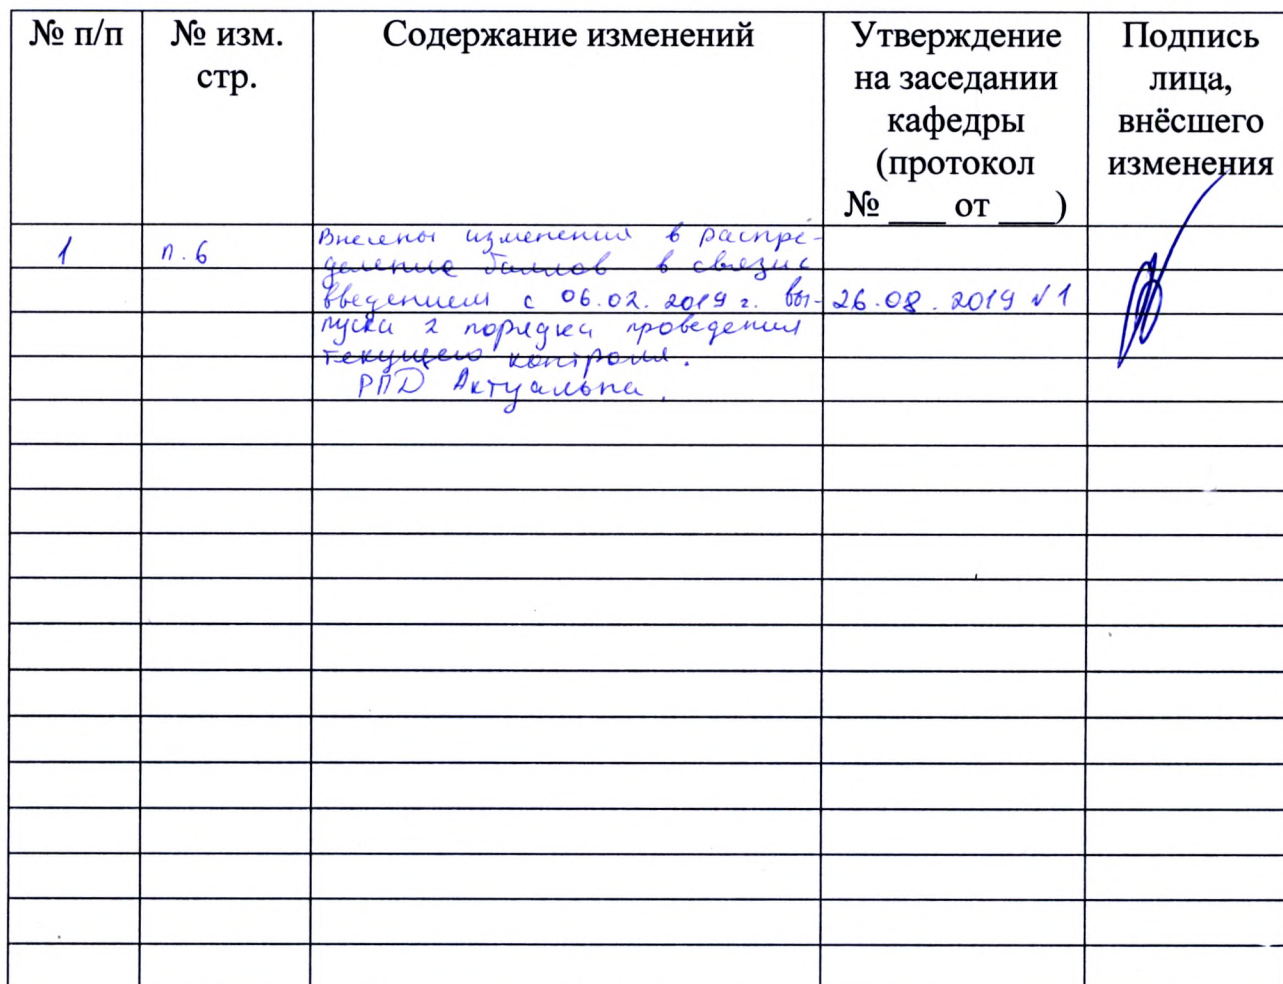 № п/п № изм. стр. Содержание изменений Утверждение на заседании кафедры (протокол № ___ от ___) Подпись лица, внёсшего изменения
1 п. 6 Внесены изменения в распре-
деление баллов в связи с
введением с 06.02.2019 г. вы- 26.08.2019 №1
пуска 2 порядка проведения
текущего контроля.
РПД Актуальна.